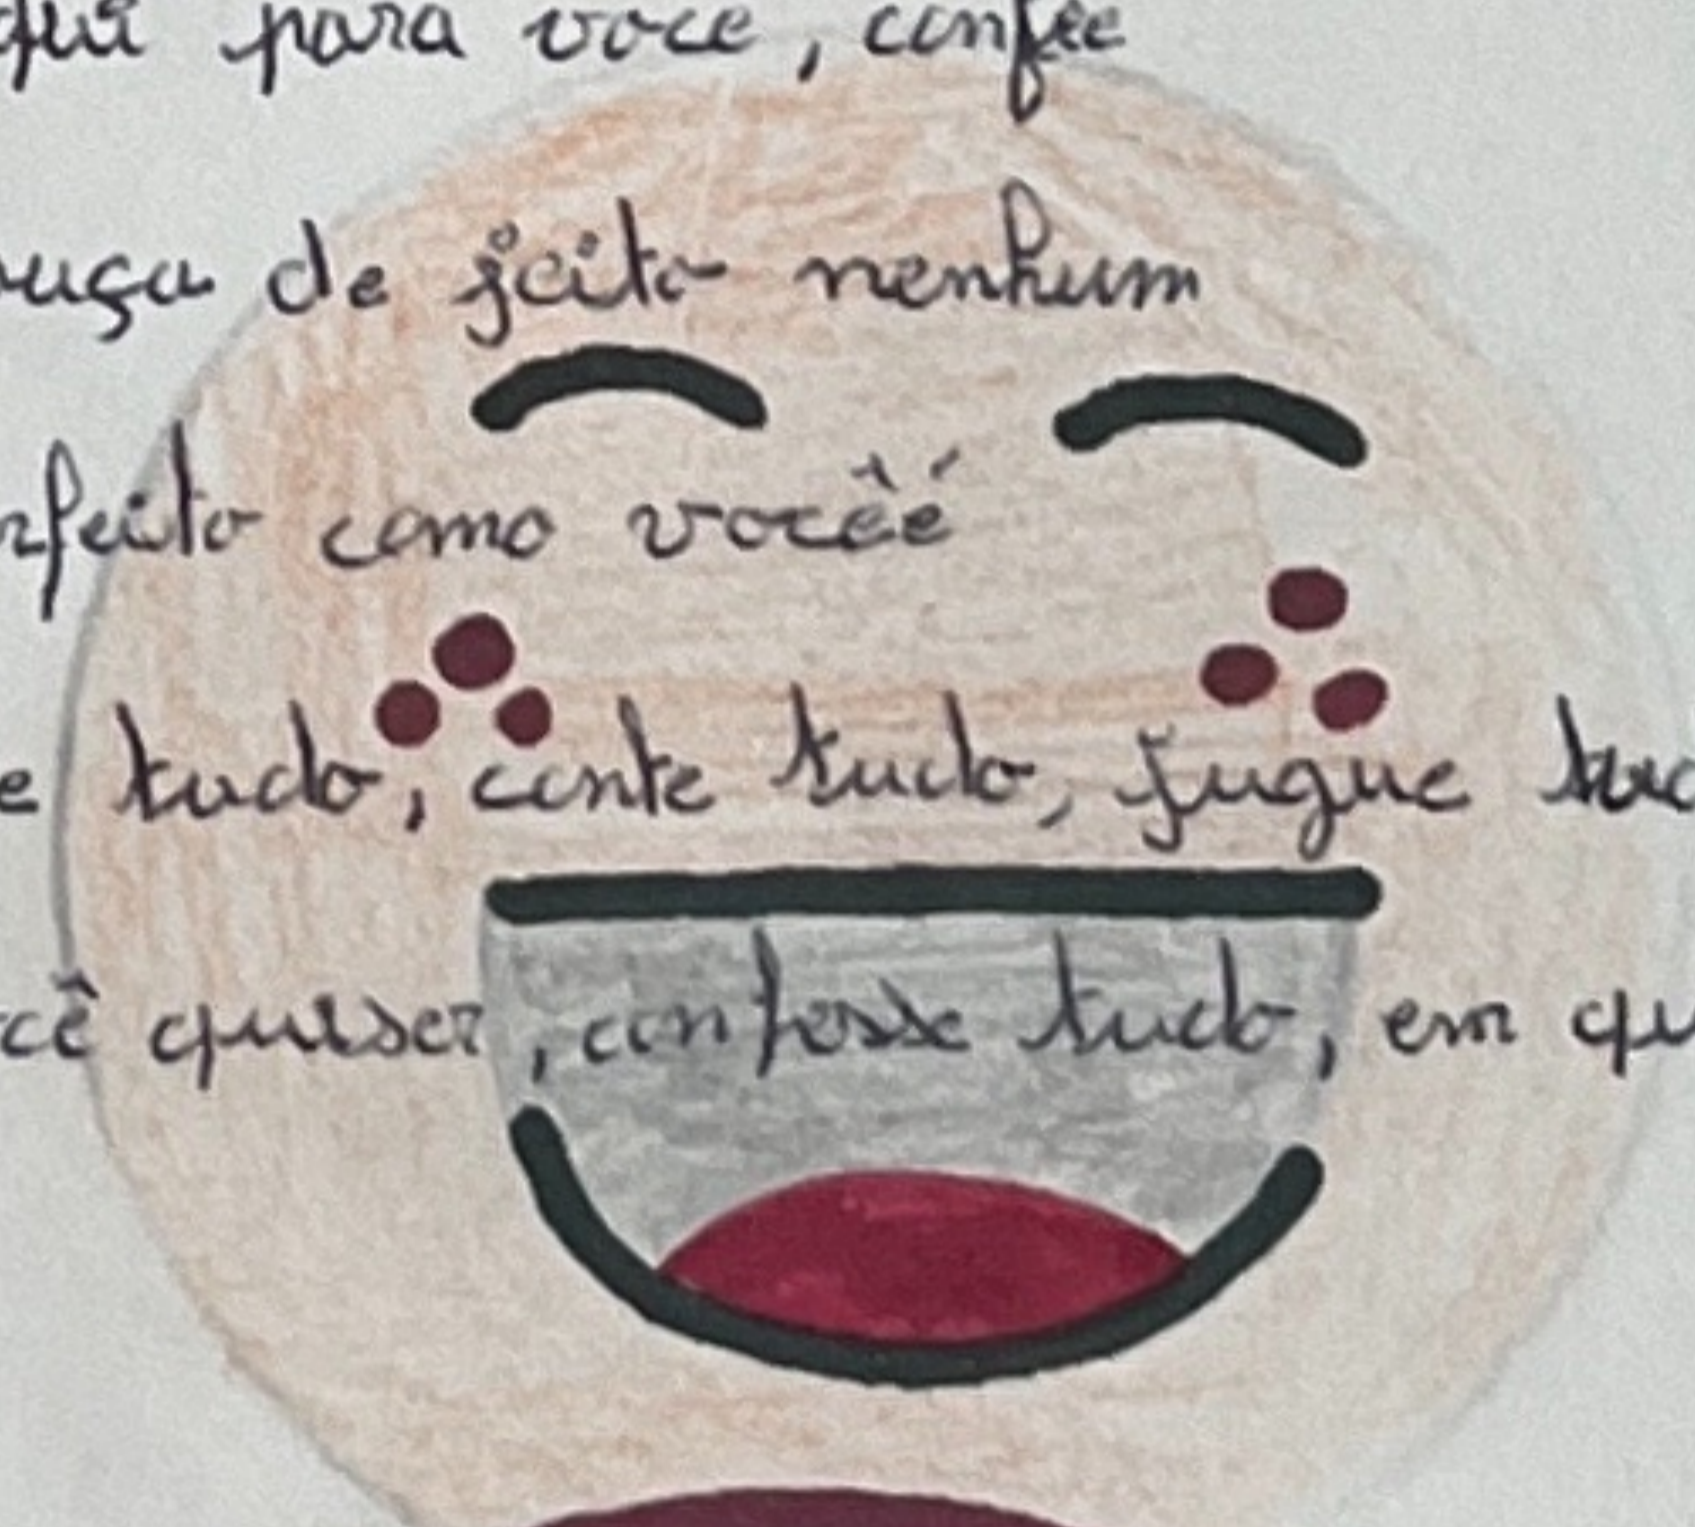 qui para voce, confie
ouça de jeito nenhum
rfeito como vocêé
e tudo, conte tudo, jugue tud
cê quiser, confesse tudo, em qu